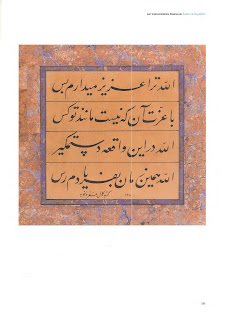 الله ترا عزیز میدارم بس
با عزت آن که نیست مانند تو کس
الله در این واقعه دستم گیر
الله همین زمان بفریادم رس